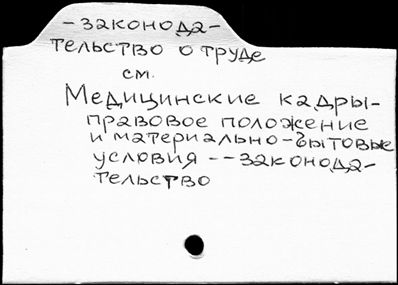 -законода-
тельство о труде
см.
Медицинские кадры-
правовое положение
и материально-бытовые
условия -- законода-
тельство